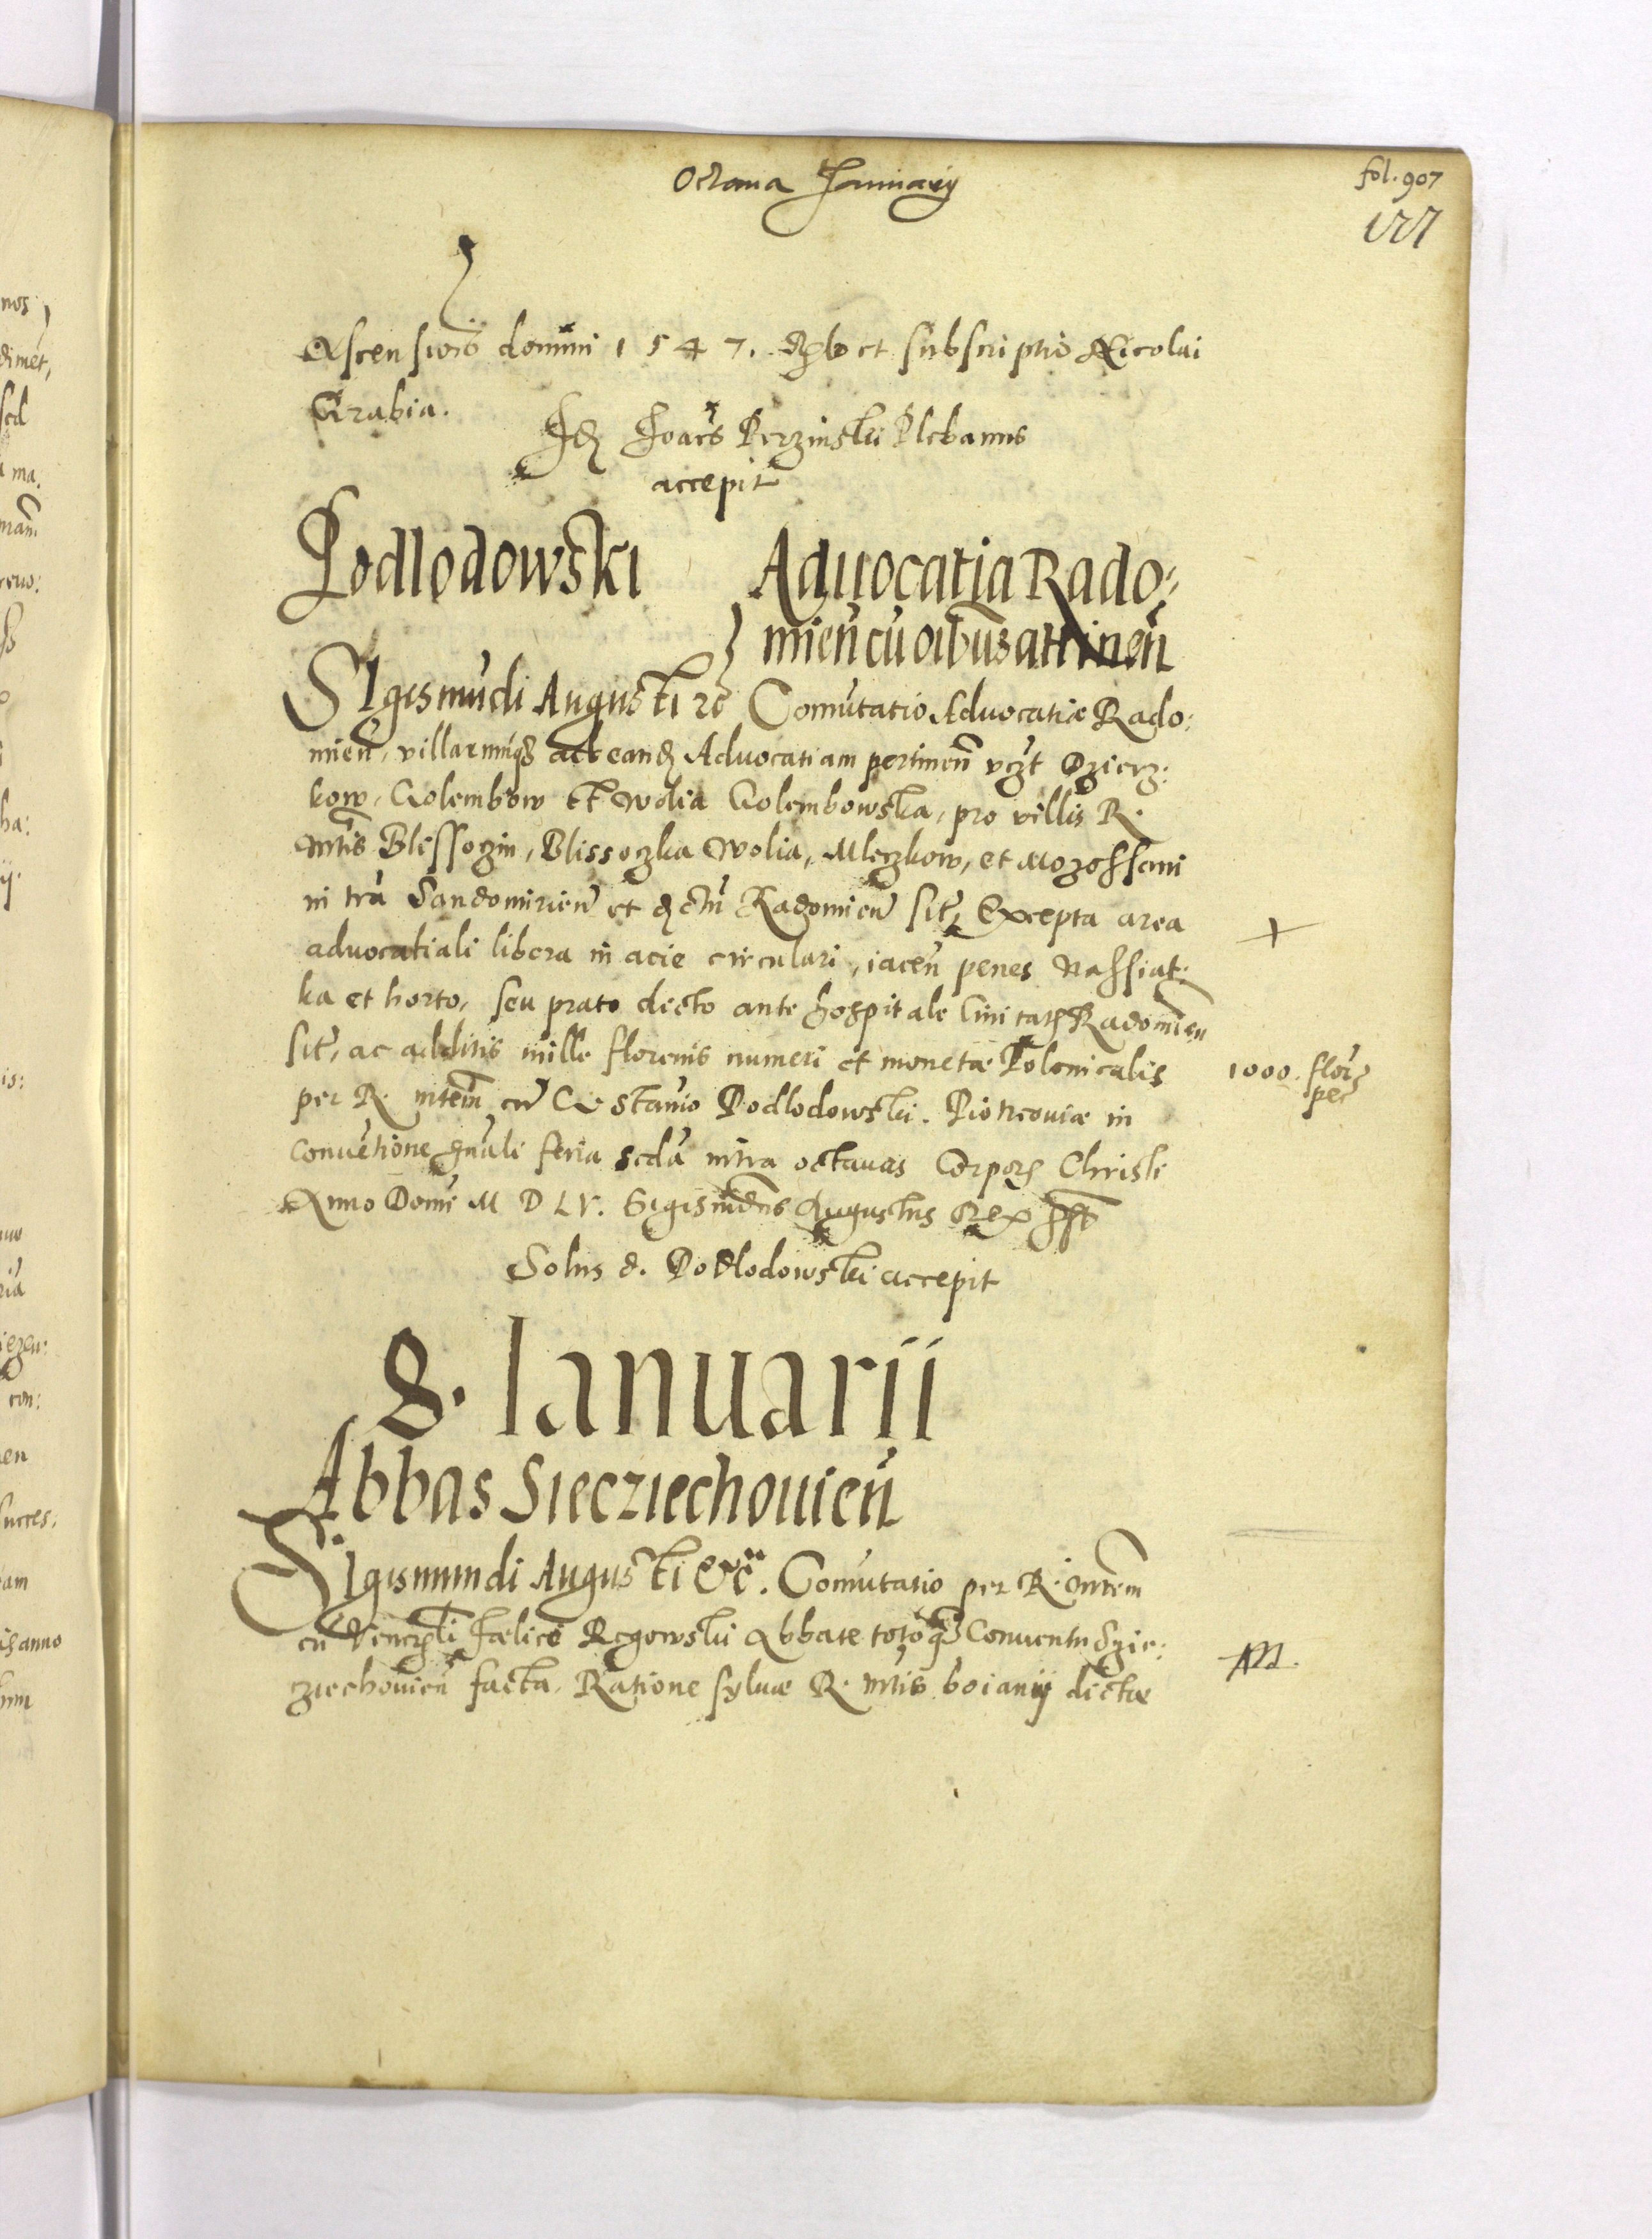 Octava Januarij
fol. 907
177
Ascensiois domini 1547. Hebet subscriptio Nicolai
Grabia.
Idem Joaes Perzinski Plebanus
accepit
Podlodowski
Advocatia Rado:
mien cu oibus attinen
Sigismudi Augusti zc Comutatio Advocatiæ Rado:
mien, villarumqз ad eand Advocatiam pertinen vczt Dzierz:
kow, Golembow et Wolia Golembowska, pro villis R.
Mtis Blessoczin, Blissoczka Wolia, Mleczkow, et Mozossani
in tra Sandomirien et dctu Radomien sit, Excepta area
advocatiali libera in acie circulari, iacen penes Nassiat:
ka et horto, seu prato dicto ante hospitale Civitatis Radomien
sit, ac additis mille florenis numeri et monetæ Polonicalis
per R. mtem cu Costanio Podlodowski. Piotrcoviæ in
Conuetione gnali feria scda intra octavas Corporis Christi
Anno Domi M D LV. Sigismudus Augustus Rex sst
Solus d. Podlodowski accepit
+
1000. flor
pec
8. Ianuarii
Abbas Siecziechouien
Sigismundi Augusti &c. Comutatio per R. Mtem
cu Venerabli Fœlice Regowski Abbate totoqз Conuentu Szie:
ziechouien facta, Ratione syluæ R. Mtis boianij dictæ
M.